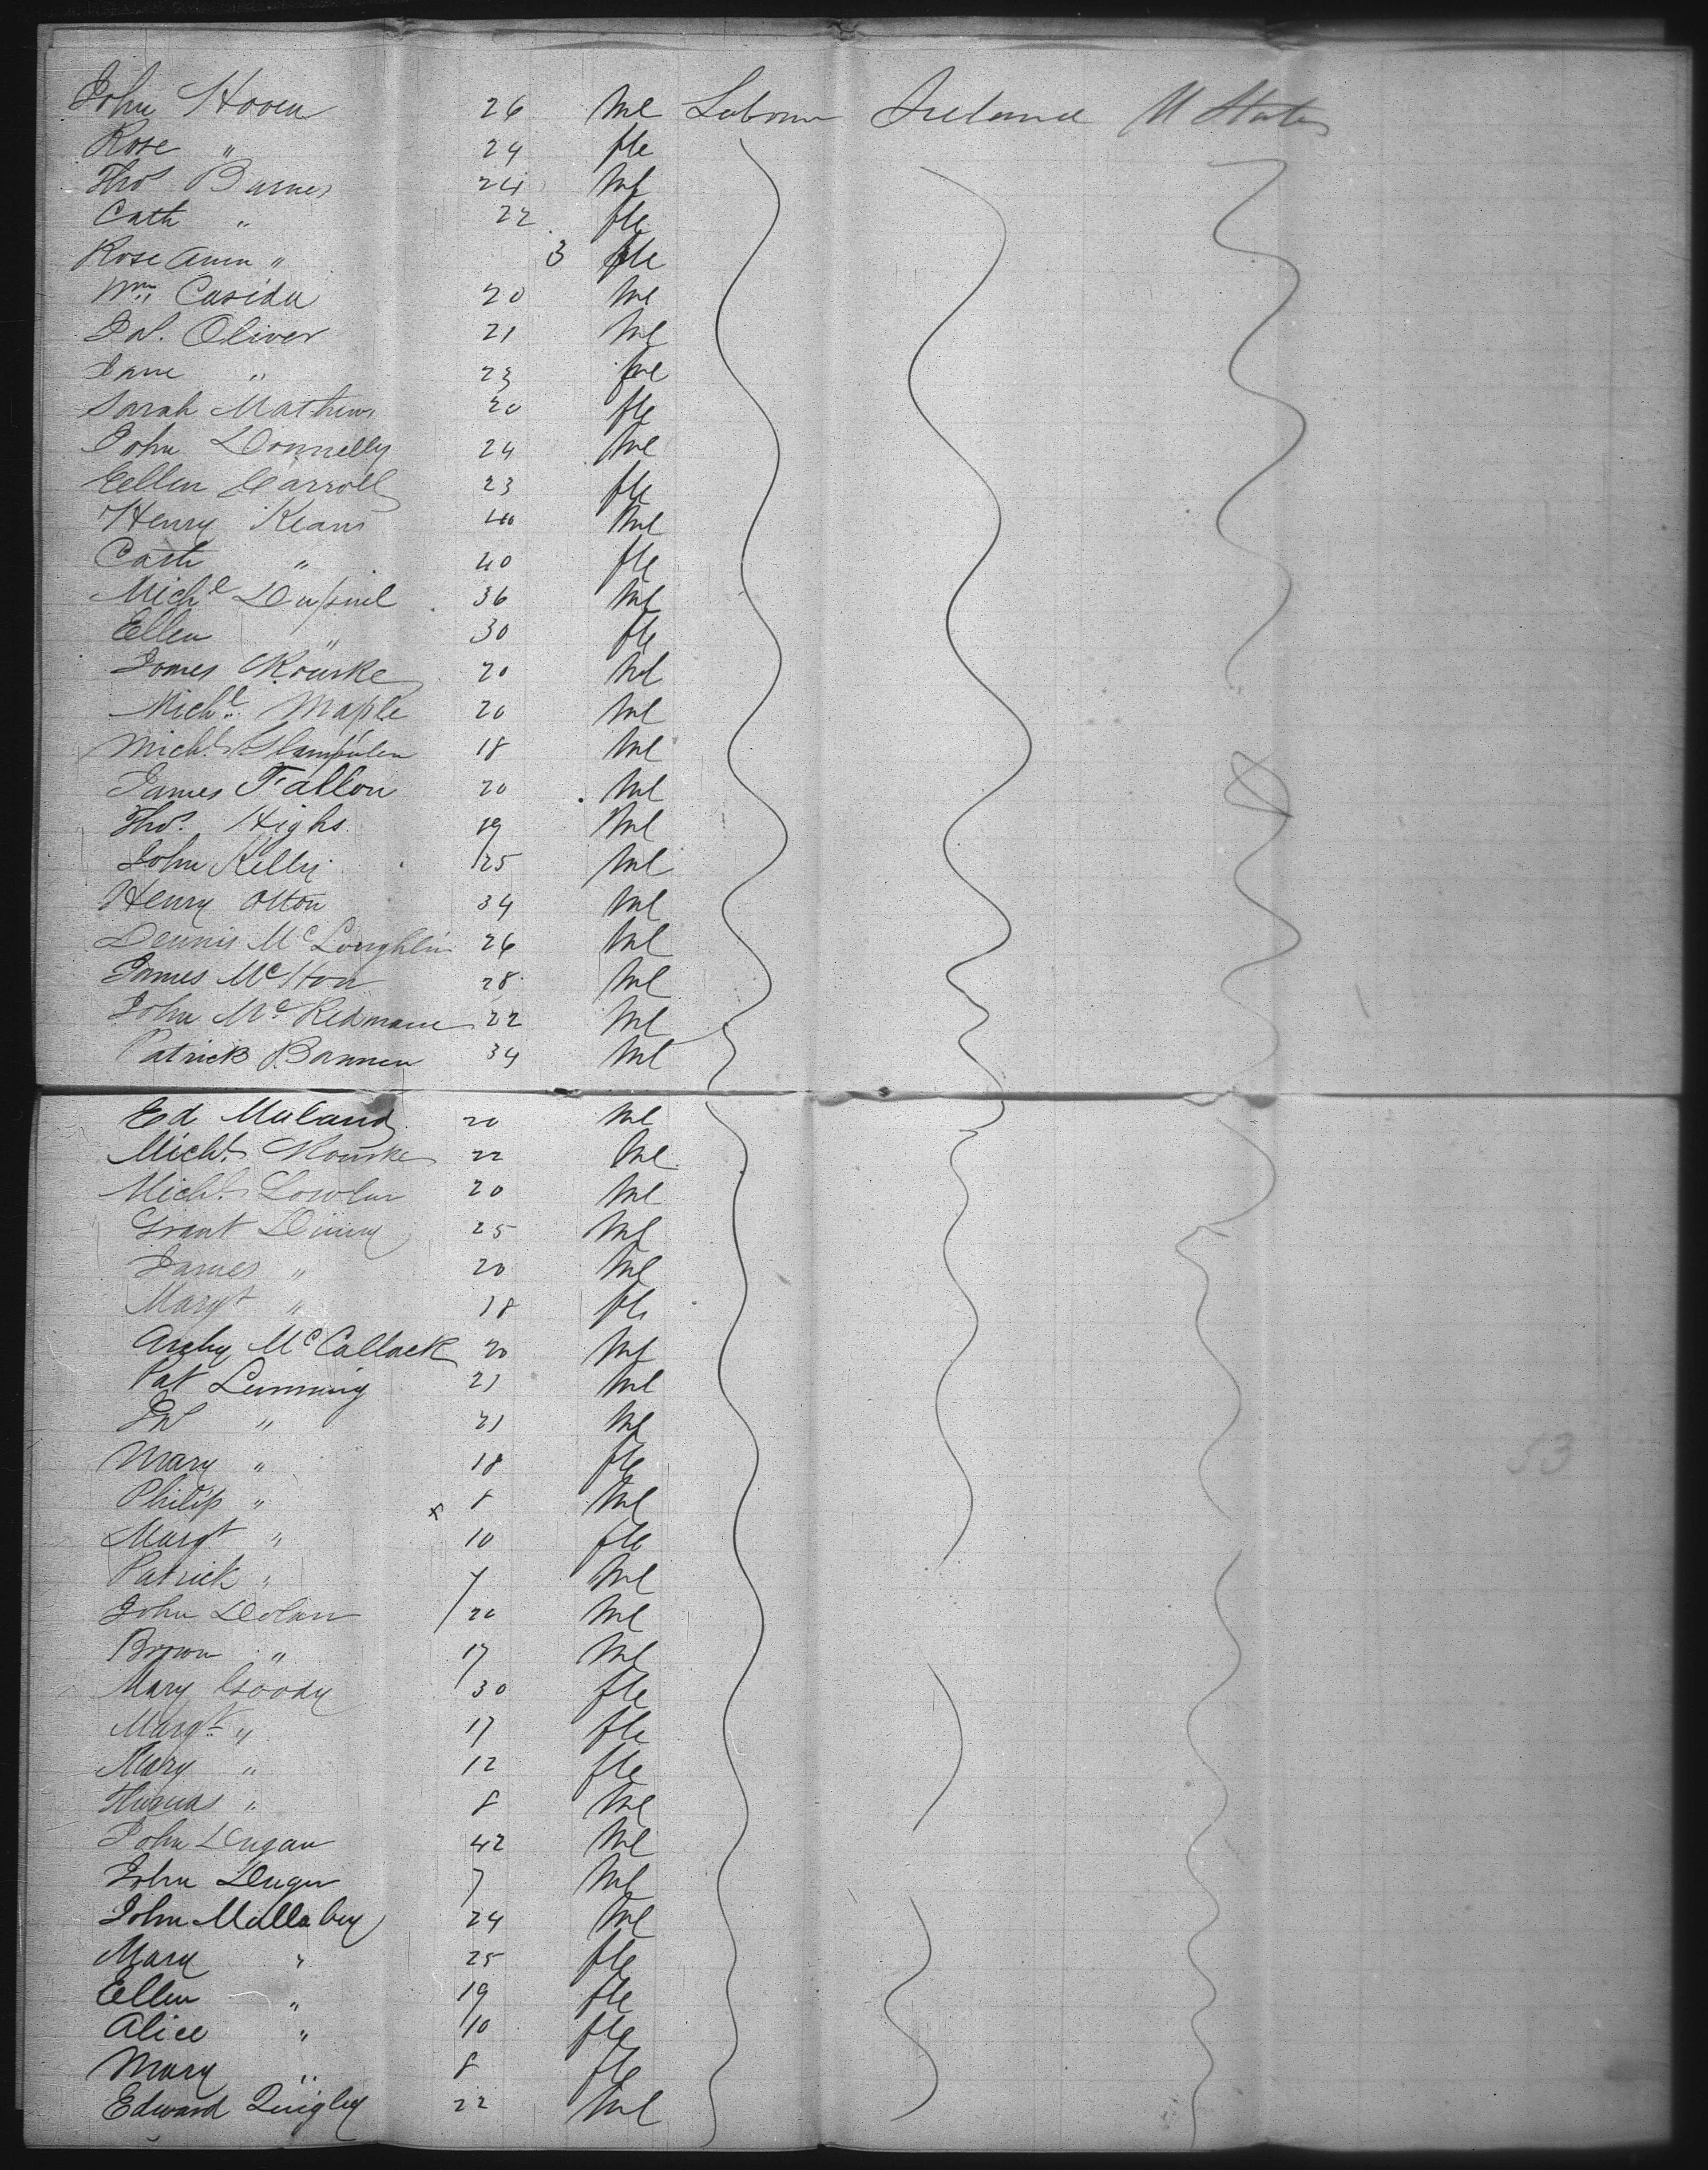 John Hoven 26 Ml Labour Ireland U States
Rose " 24 fle
Thos Barnes 24 Ml
Cath " 22 fle
Rose Ann " 3 fle
Wm Casidu 20 Ml
Jas. Oliver 21 Ml
Jane " 23 fle
Sarah Mathews 20 fle
John Donnelly 24 Ml
Ellen Carroll 23 fle
Henry Keans 40 Ml
Cath " 40 fle
Michl 36 Ml
Ellen " 30 fle
James Rourke 20 Ml
Michl Maple 20 Ml
Michl 18 Ml
James Fallon 20 Ml
Thos. Highs 19 Ml
John Kelly 25 Ml
Henry Otton 34 Ml
Dennis McLoughlin 26 Ml
James McHon 28 Ml
John McRedmann 22 Ml
Patrick Bannen 34 Ml
Ed Muland 20 Ml
Michl Rourke 22 Ml
Michl Lowler 20 Ml
Grant 25 Ml
James " 20 Ml
Margt " 18 fle
Archy McCallack 20 Ml
Pat Lumming 21 Ml
Jas " 21 Ml
Mary " 18 fle
Philip " x 8 Ml
Margt " 10 fle
Patrick " 7 Ml
John Dolan 20 Ml
Brown " 17 Ml
Mary Goody 30 fle
Margt " 17 fle
Mary " 12 fle
Thomas " 8 Ml
John Dugan 42 Ml
John Dugan 7 Ml
John Mallaby 24 Ml
Mary " 25 fle
Ellen " 19 fle
Alice " 10 fle
Mary " 8 fle
Edward Quigley 22 Ml
53